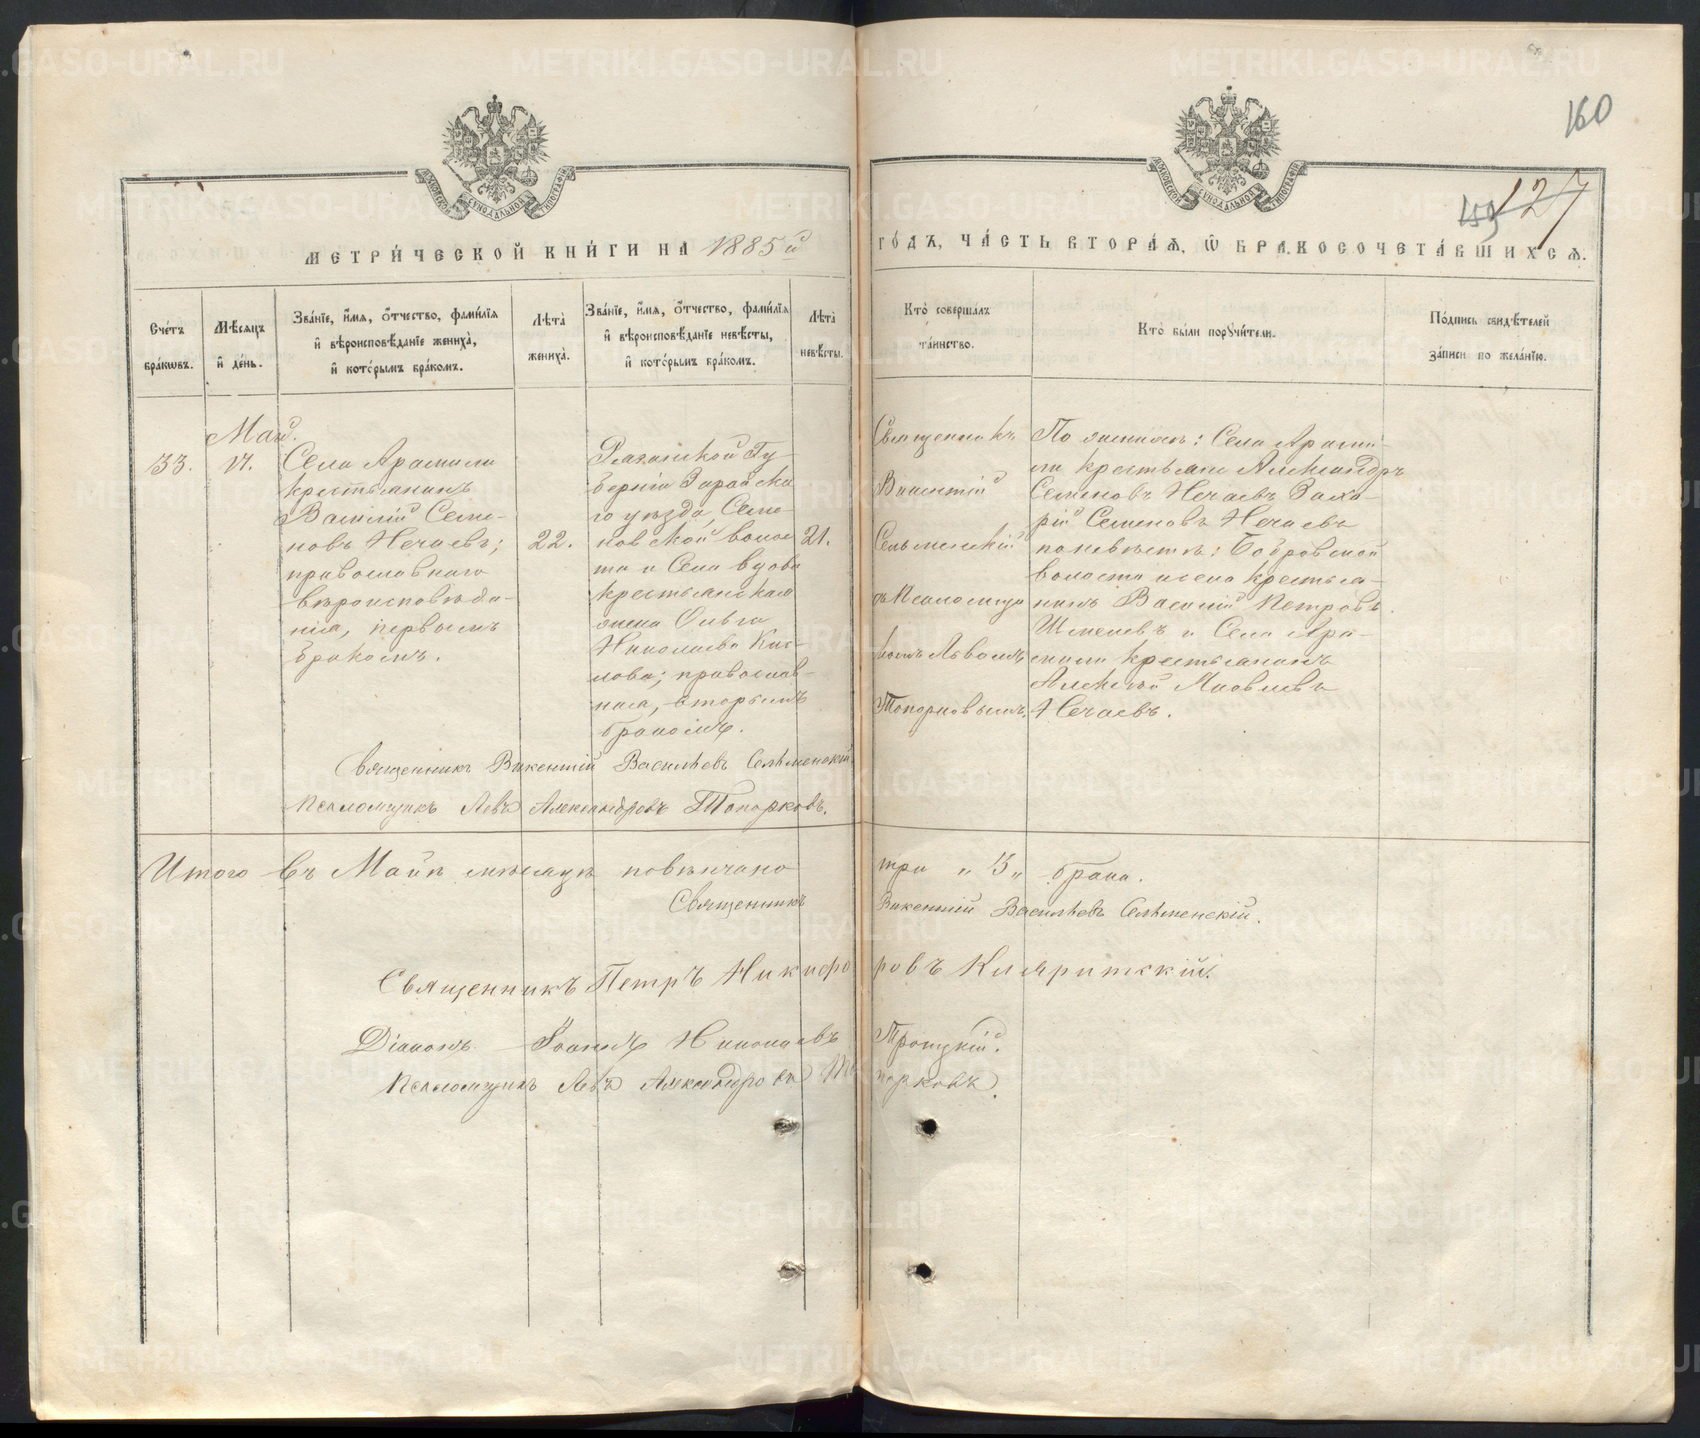 160
159
127
МЕТРИЧЕСКОЙ КНИГИ НА 1885й
ГОДЪ, ЧАСТЬ ВТОРАЯ, Ѿ БРАКОСОЧЕТАВШИХСЯ.
Счетъ браковъ.
Мѣсяцъ и день.
Званіе, имя, отчество, фамилія
и вѣроисповѣданіе жениха,
и которымъ бракомъ.
Лѣта жениха.
Званіе, имя, отчество, фамилія
и вѣроисповѣданіе невѣсты,
и которымъ бракомъ.
Лѣта невѣсты.
Кто совершалъ
таинство.
Кто были поручители.
Подпись свидѣтелей
записи по желанію.
33.
Май.
17.
Села Арамили
крестьянинъ
Василій Семе-
новъ Нечаевъ;
православнаго
вѣроисповѣда-
нія, первымъ
бракомъ.
22.
Рязанской Гу-
берніи Зарайска-
го уѣзда, Семе-
новской волос
ти и Села вдова
крестьянская
жена Ольга
Николаева Кис-
лова; православ-
ная, вторымъ
бракомъ.
21.
Священникъ
Викентій
Сельменскій
съ Псаломщи
комъ Львомъ
Топорковымъ.
По женихѣ: Села Арами-
ли крестьяне Александръ
Семеновъ Нечаевъ Заха-
рій Семеновъ Нечаевъ
по невѣстѣ: Бобровской
волости и села крестья-
нинъ Василій Петровъ
Шмелевъ и Села Ара-
мили крестьянинъ
Алексѣй Яковлевъ
Нечаевъ.
Священникъ Викентій Васильевъ Сельменскій
Псаломщикъ Левъ Александровъ Топорковъ.
Итого въ Маѣ мѣсяцѣ повѣнчано три „3„ брака.
Священникъ Викентій Васильевъ Сельменскій.
Священникъ Петръ Никифоровъ
Діаконъ Іоаннъ Николаевъ Троицкій.
Псаломщикъ Левъ Александровъ Топорковъ.
METRIKI.GASO-URAL.RU